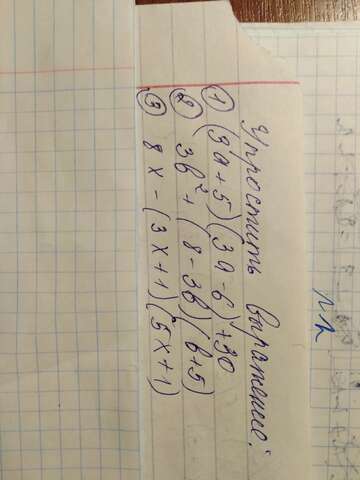 Упростить выражение:
① (3a + 5)(3a - 6) + 30
② 3b² + (8 - 3b)(b + 5)
③ 8x - (3x + 1)(5x + 1)